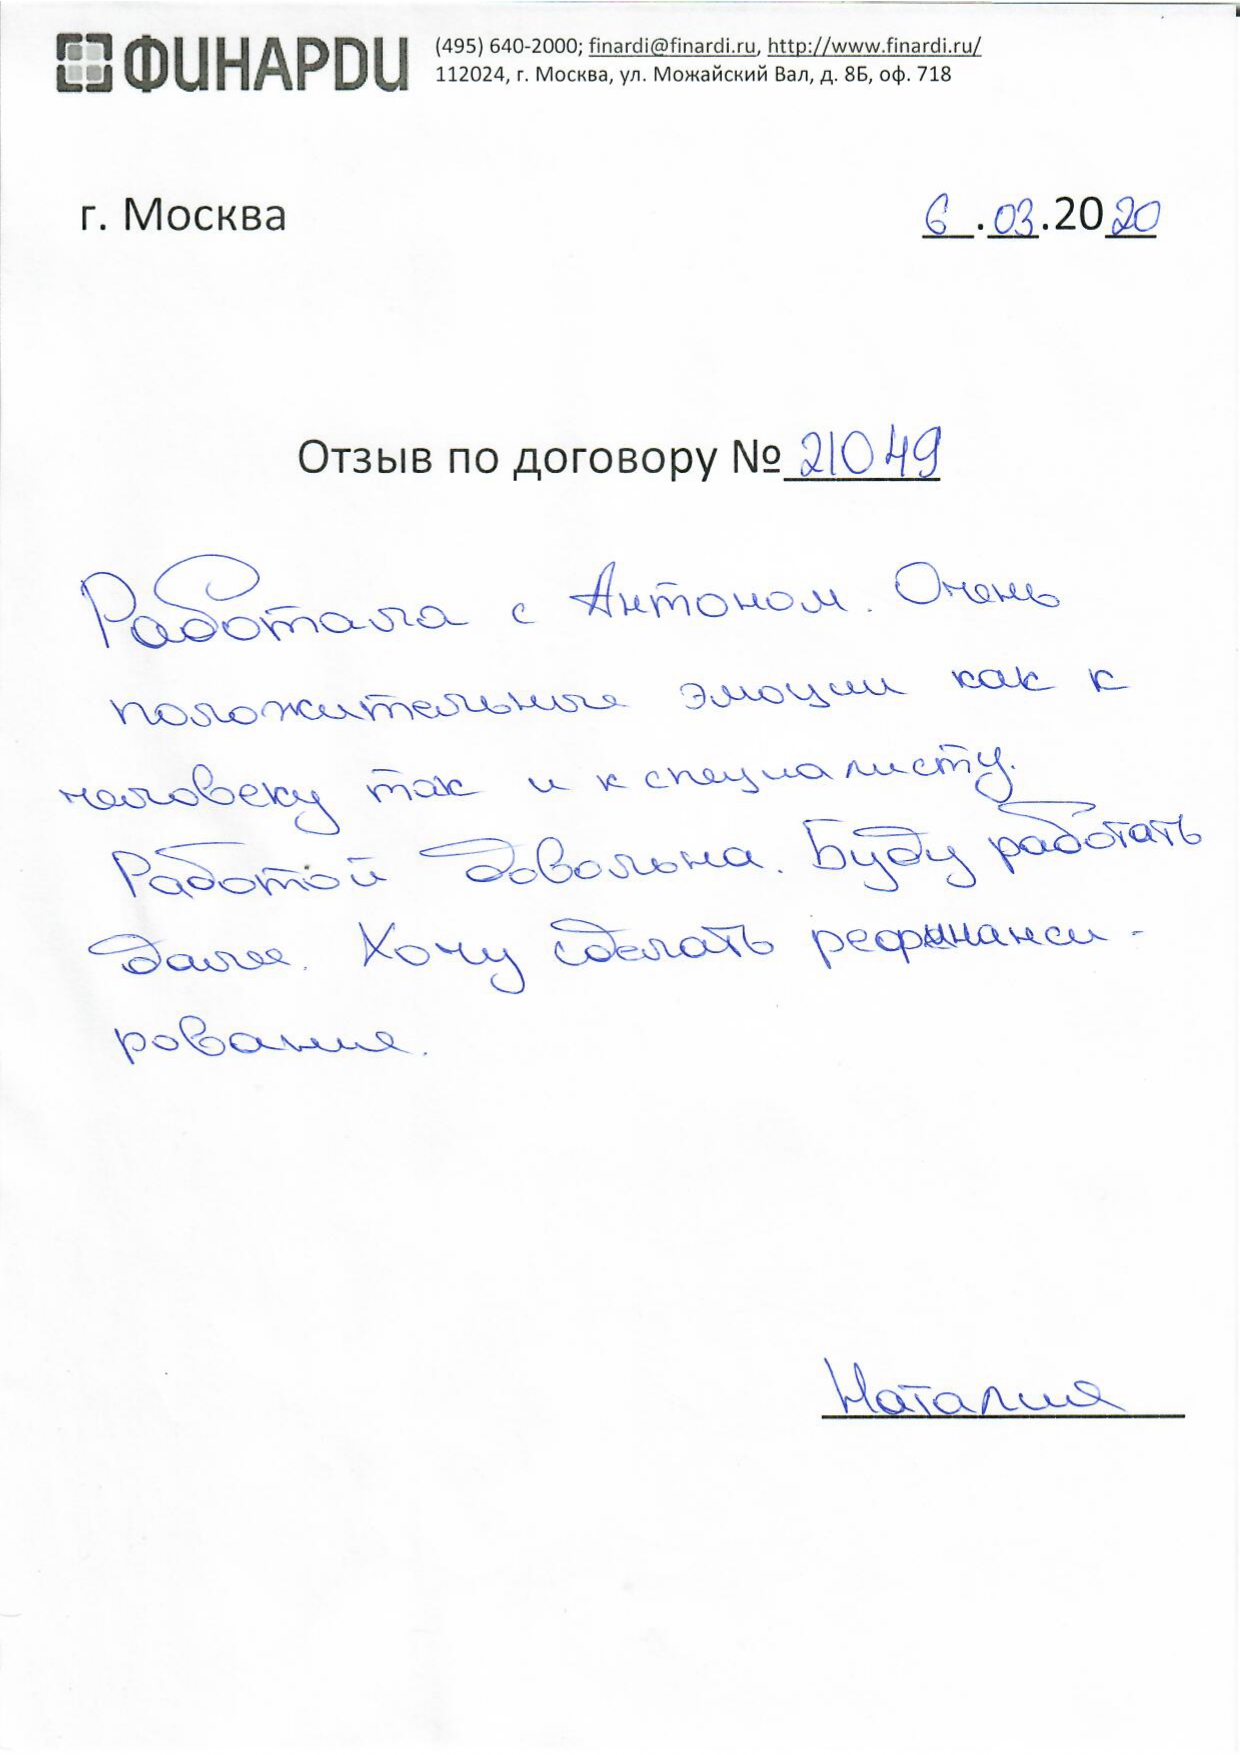 ФИНАРДИ
(495) 640-2000; finardi@finardi.ru, http://www.finardi.ru/
112024, г. Москва, ул. Можайский Вал, д. 8Б, оф. 718
г. Москва 6.03.2020
Отзыв по договору № 21049
Работала с Антоном. Очень
положительные эмоции как к
человеку так и к специалисту.
Работой довольна. Буду работать
далее. Хочу сделать рефинанси-
рование.
Наталия